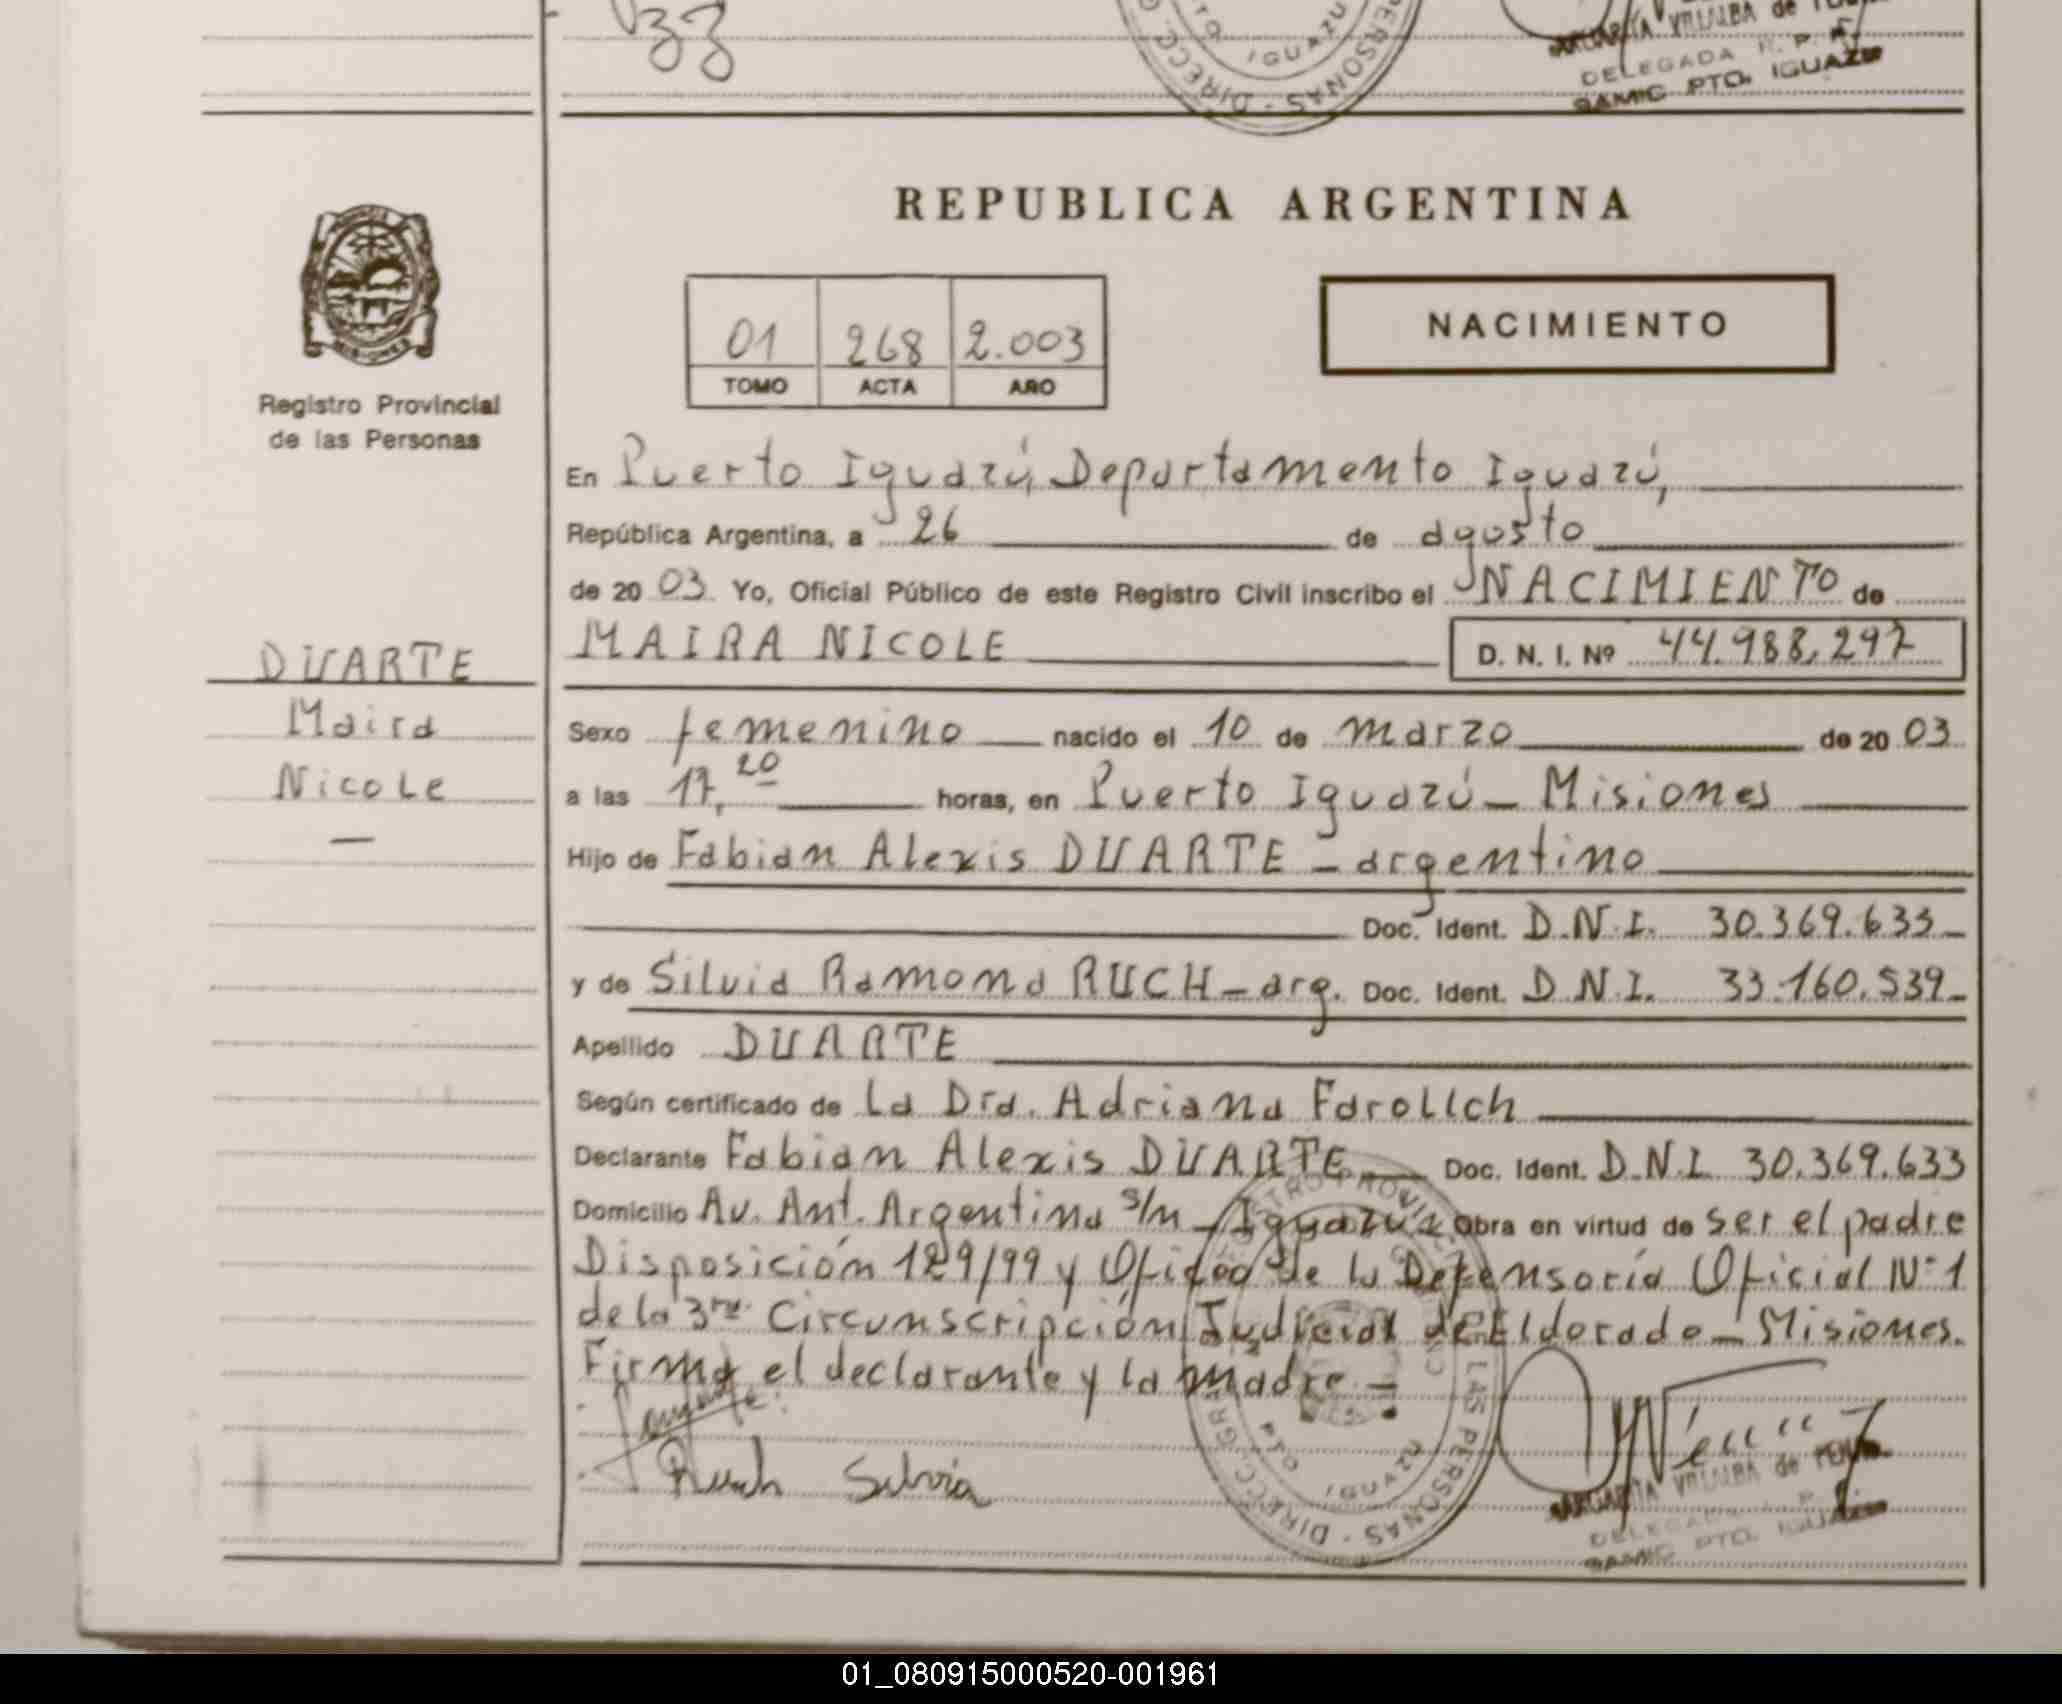 33
DIRECC. PERSONAS
PTO. IGUAZU
MARGARITA VILLALBA de
DELEGADA R. P. P.
SAMIC PTO. IGUAZU
REPUBLICA ARGENTINA
MISIONES
Registro Provincial
de las Personas
01 268 2.003
TOMO ACTA AÑO
NACIMIENTO
En Puerto Iguazú, Departamento Iguazú,
República Argentina, a 26 de agosto
de 2003 Yo, Oficial Público de este Registro Civil inscribo el NACIMIENTO de
MAIRA NICOLE D. N. I. Nº 44.988.297
DUARTE
Maira
Nicole
Sexo femenino nacido el 10 de marzo de 2003
a las 17,20 horas, en Puerto Iguazú - Misiones
Hijo de Fabian Alexis DUARTE - argentino
Doc. Ident. D.N.I. 30.369.633-
y de Silvia Ramona RUCH - arg. Doc. Ident. D.N.I. 33.160.539-
Apellido DUARTE
Según certificado de la Dra. Adriana Farollch
Declarante Fabian Alexis DUARTE Doc. Ident. D.N.I. 30.369.633
Domicilio Av. Ant. Argentina s/n - Iguazú Obra en virtud de ser el padre
Disposición 129/99 y Oficio de la Defensoría Oficial Nº 1
de la 3ra. Circunscripción Judicial de Eldorado - Misiones.
Firma el declarante y la madre. -
Ruch Silvia
PTO. IGUAZU
MARGARITA VILLALBA de
DELEGADA R. P.
SAMIC PTO. IGUAZU
01_080915000520-001961